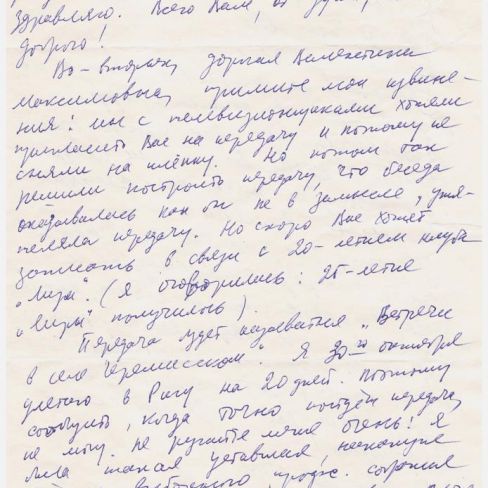 здравляю. Всего Вам, от души,
доброго!
Во-вторых, дорогая Валентина
Максимовна, примите мои извине-
ния: мы с телевизионщиками хотели
пригласить Вас на передачу и потому не
сняли на плёнку. Но потом так
решили построить передачу, что беседа
оказывалась как бы не в замысле, утя-
желяла передачу. Но скоро Вас хотят
записать в связи с 20-летием клуба
"Лиры". (Я оговорилась: 25-летие
"Лиры" получилось).
Передача будет называться "Встречи
в селе Черемисском". Я 20-го октября
улетаю в Ригу на 20 дней. Поэтому
сообщить, когда точно пойдёт передача,
не могу. Не ругайте меня очень! Я
была такая уставшая, накануне